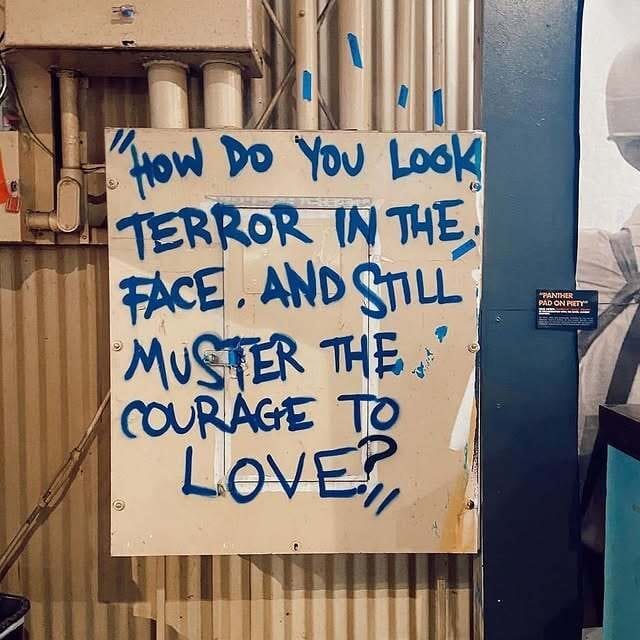 "HOW DO YOU LOOK
TERROR IN THE
FACE. AND STILL
MUSTER THE
COURAGE TO
LOVE?"
"PANTHER
PAD ON PIETY"